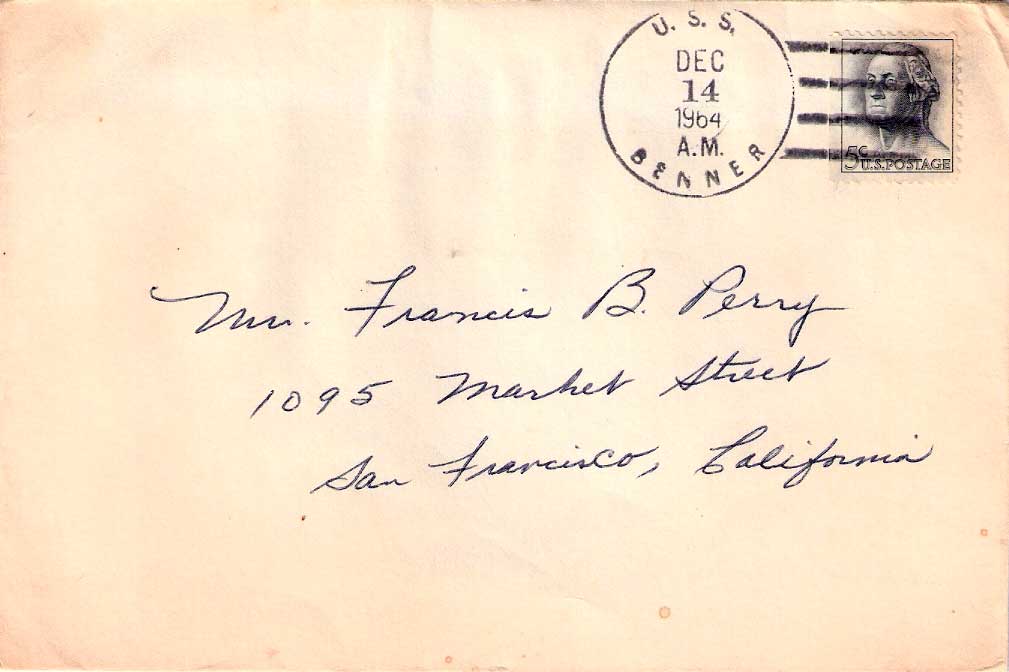 U. S. S.
DEC
14
1964
A.M.
BENNER
5¢ U.S. POSTAGE
Mr. Francis B. Perry
1095 Market Street
San Francisco, California